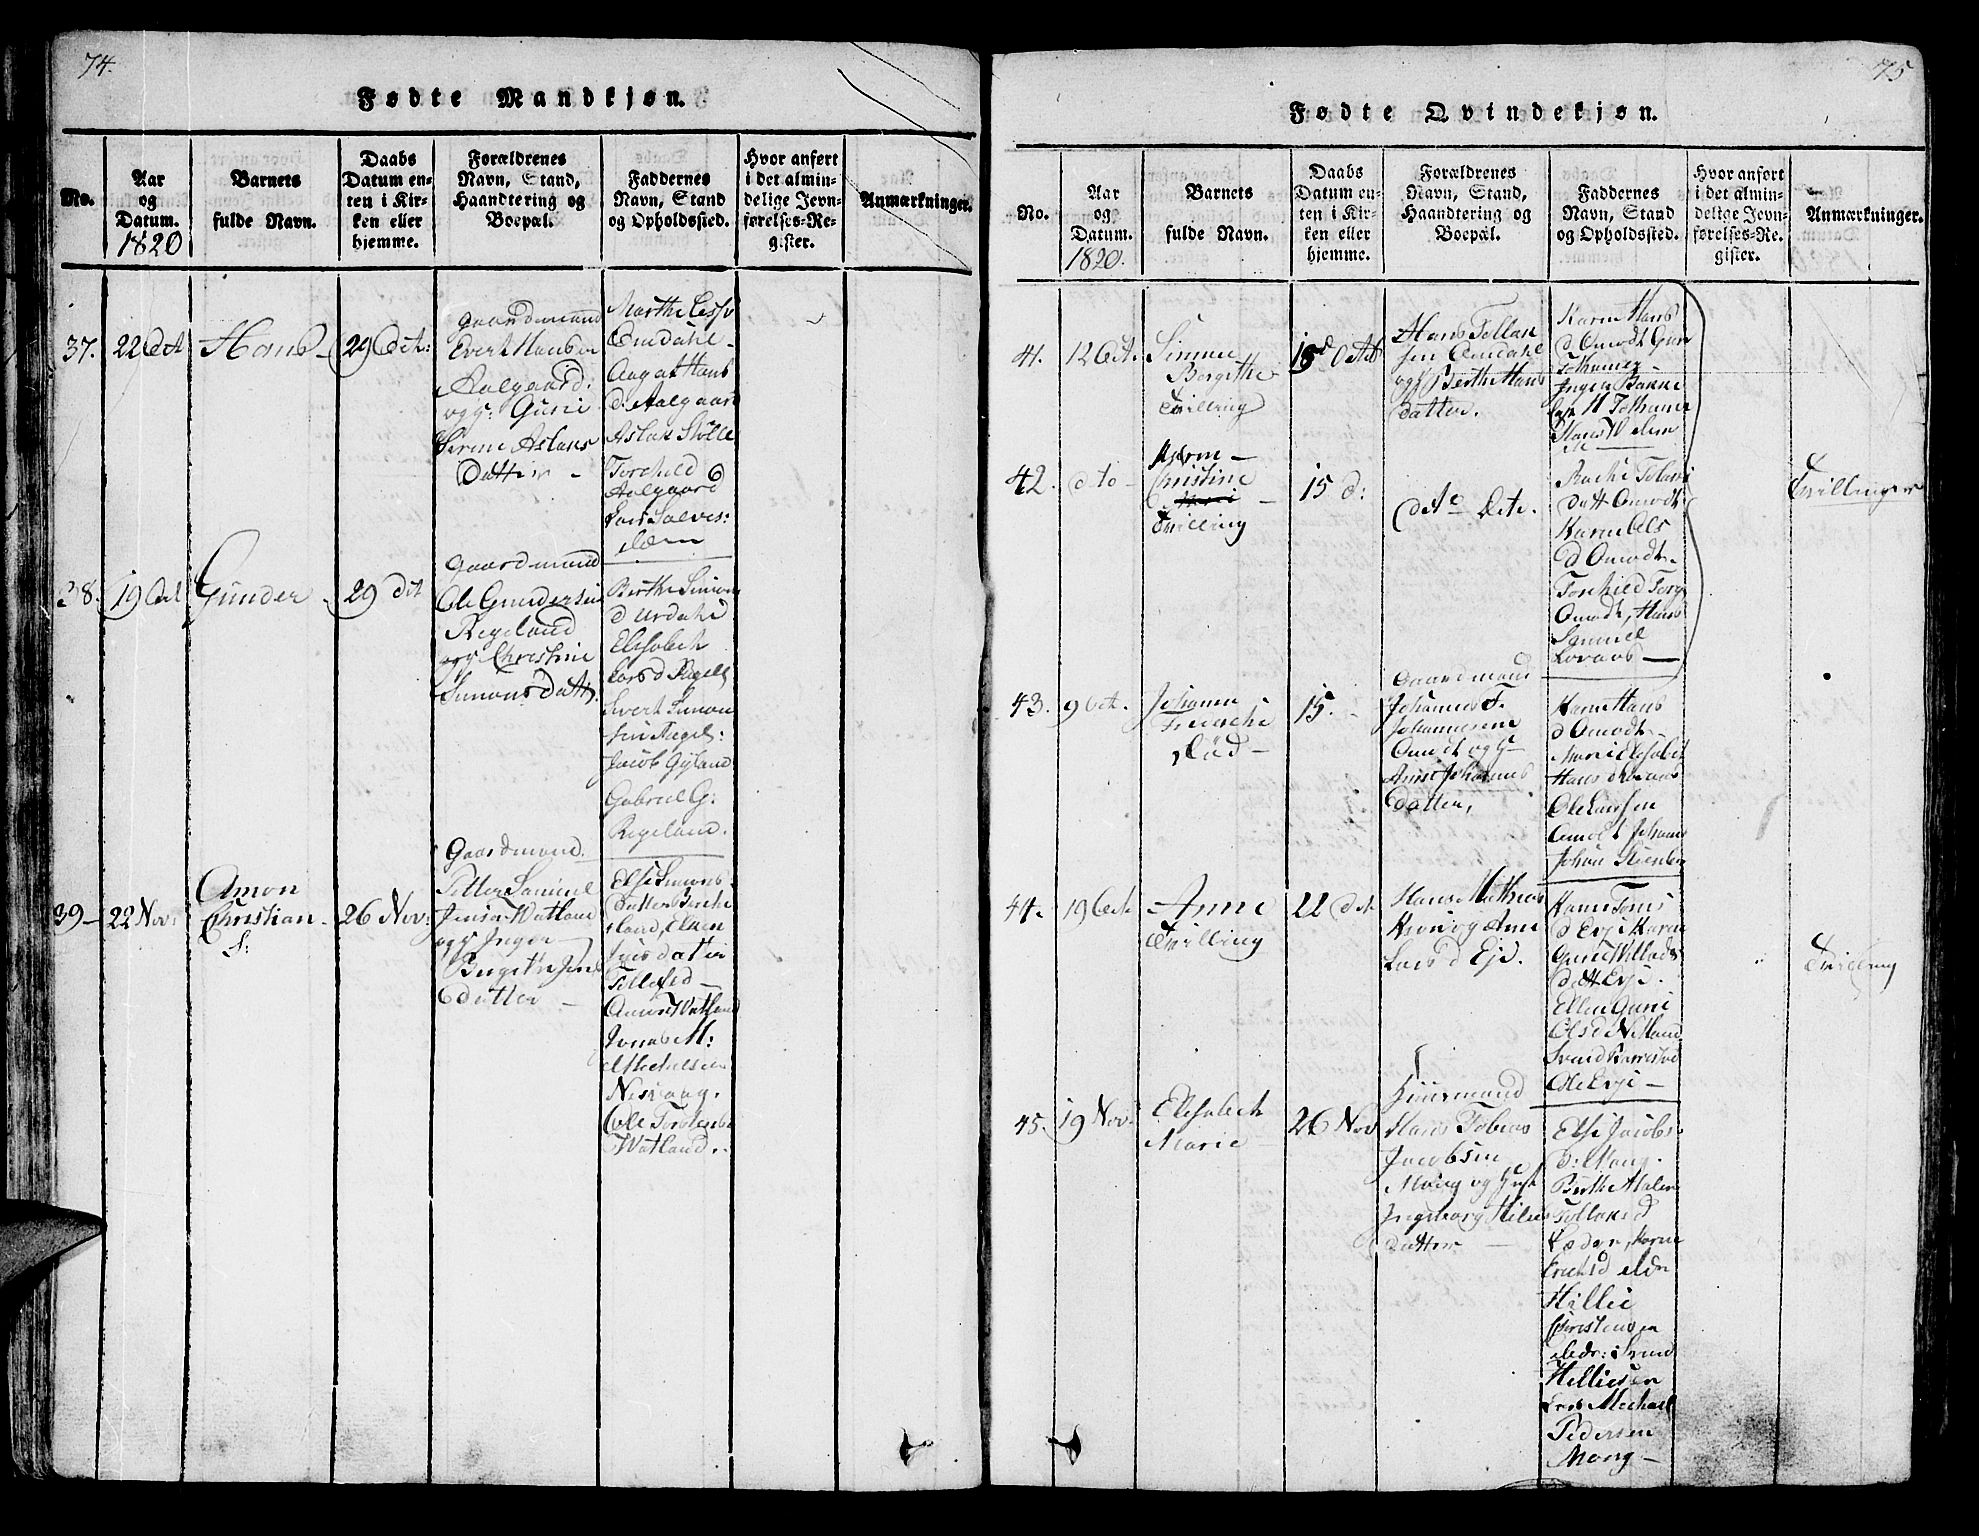 74.
Fødte Mandkjøn.
No.
Aar
og
Datum.
1820
Barnets
fulde Navn.
Daabs
Datum en-
ten i Kir-
ken eller
hjemme.
Forældrenes
Navn, Stand,
Haandtering og
Boepæl.
Faddernes
Navn, Stand
og Opholdssted.
Hvor anført
i det almin-
delige Jevn-
førelses-Re-
gister.
Anmærkninger.
37.
22 Oct
Hans
29 Oct:
Gaardmand
Evert Hansen
Aalgaard
og H: Guri
Sirene Aslaks
Datter
Marthe
Omdahl
Aagat Hans
d. Aalgaard
Aslak Stølle
Torchild
Aalgaard
Lars Salves:
38.
19 Oct
Gunder
29 Oct
Gaardmand
Ole Gundersen
Regeland
og H Christine
Simons Datt.
Berthe Simons
d Urdahl
Elisabeth
Lars d Regel
Sivert Simon
sen Regel:
Jacob Gyland
Gabriel G:
Regeland.
39
22 Nov:
Amon
Christian
26 Nov:
Gaardmand
Petter Samuel
Jensen Watland
og H Inger
Bergithe Jens
Datter
Else Simons
Datter Birche
land, Ellen
Jens datter
Tellefsd
Amon Watland
Jonas M:
Michelsen
Nesvaag.
Ole Torstens
Watland.
75
Fødte Qvindekjøn.
No.
Aar
og
Datum.
1820.
Barnets
fulde Navn.
Daabs
Datum en-
ten i Kir-
ken eller
hjemme.
Forældrenes
Navn, Stand,
Haandtering og
Boepæl.
Faddernes
Navn, Stand
og Opholdssted.
Hvor anført
i det almin-
delige Jevn-
førelses-Re-
gister.
Anmærkninger.
41.
12 Oct.
Simine
Bergithe
Tvilling
15d Octb
Hans Tollak
sen Omdahl
og H Berthe Hans
datter.
Karen Hans
d Omodt
Inger Bakke
42.
dto
Karen
Christine
Tvilling
15 d:
dito Dito.
Rachel Tollaks
datt Omodt
Karen Ols
d Omodt
Torchild Torg
Omodt, Hans
Samuel
Lovaas
Tvillinger
43.
9 Oct.
Johanne
15.
Gaardmand
Johannes F.
Johannesen
Omodt og H
Anne Johannes
Datter,
Karen Hans
d Omodt
Marie Elisabet
Hans d Lovaas
Ole Larsen
Omodt Johannes
Johan Steenber
44.
19 Oct
Anne
Tvilling
22 Oct
Hans Mathias
og Anne
Lars d Eje.
Karen Tønnes
d Erje Karen
Gurie Willads
datt Erje.
Ellen Guri
Ols d Netland
Svend
Ole Erje
Tvilling
45.
19 Nov:
Elisabeth
Marie
26 Nov
Huusmand
Hans Tobias
Jacobsen
Moug og Hust
Ingeborg Hilles
datter
Else Jacobs
D: Moug.
Berthe Malen
Tollaks d
Erichs d eldr
Hillie
Christensen
eldr: Svend
Hilliesen
Lars Michael
Pedersen
Moug